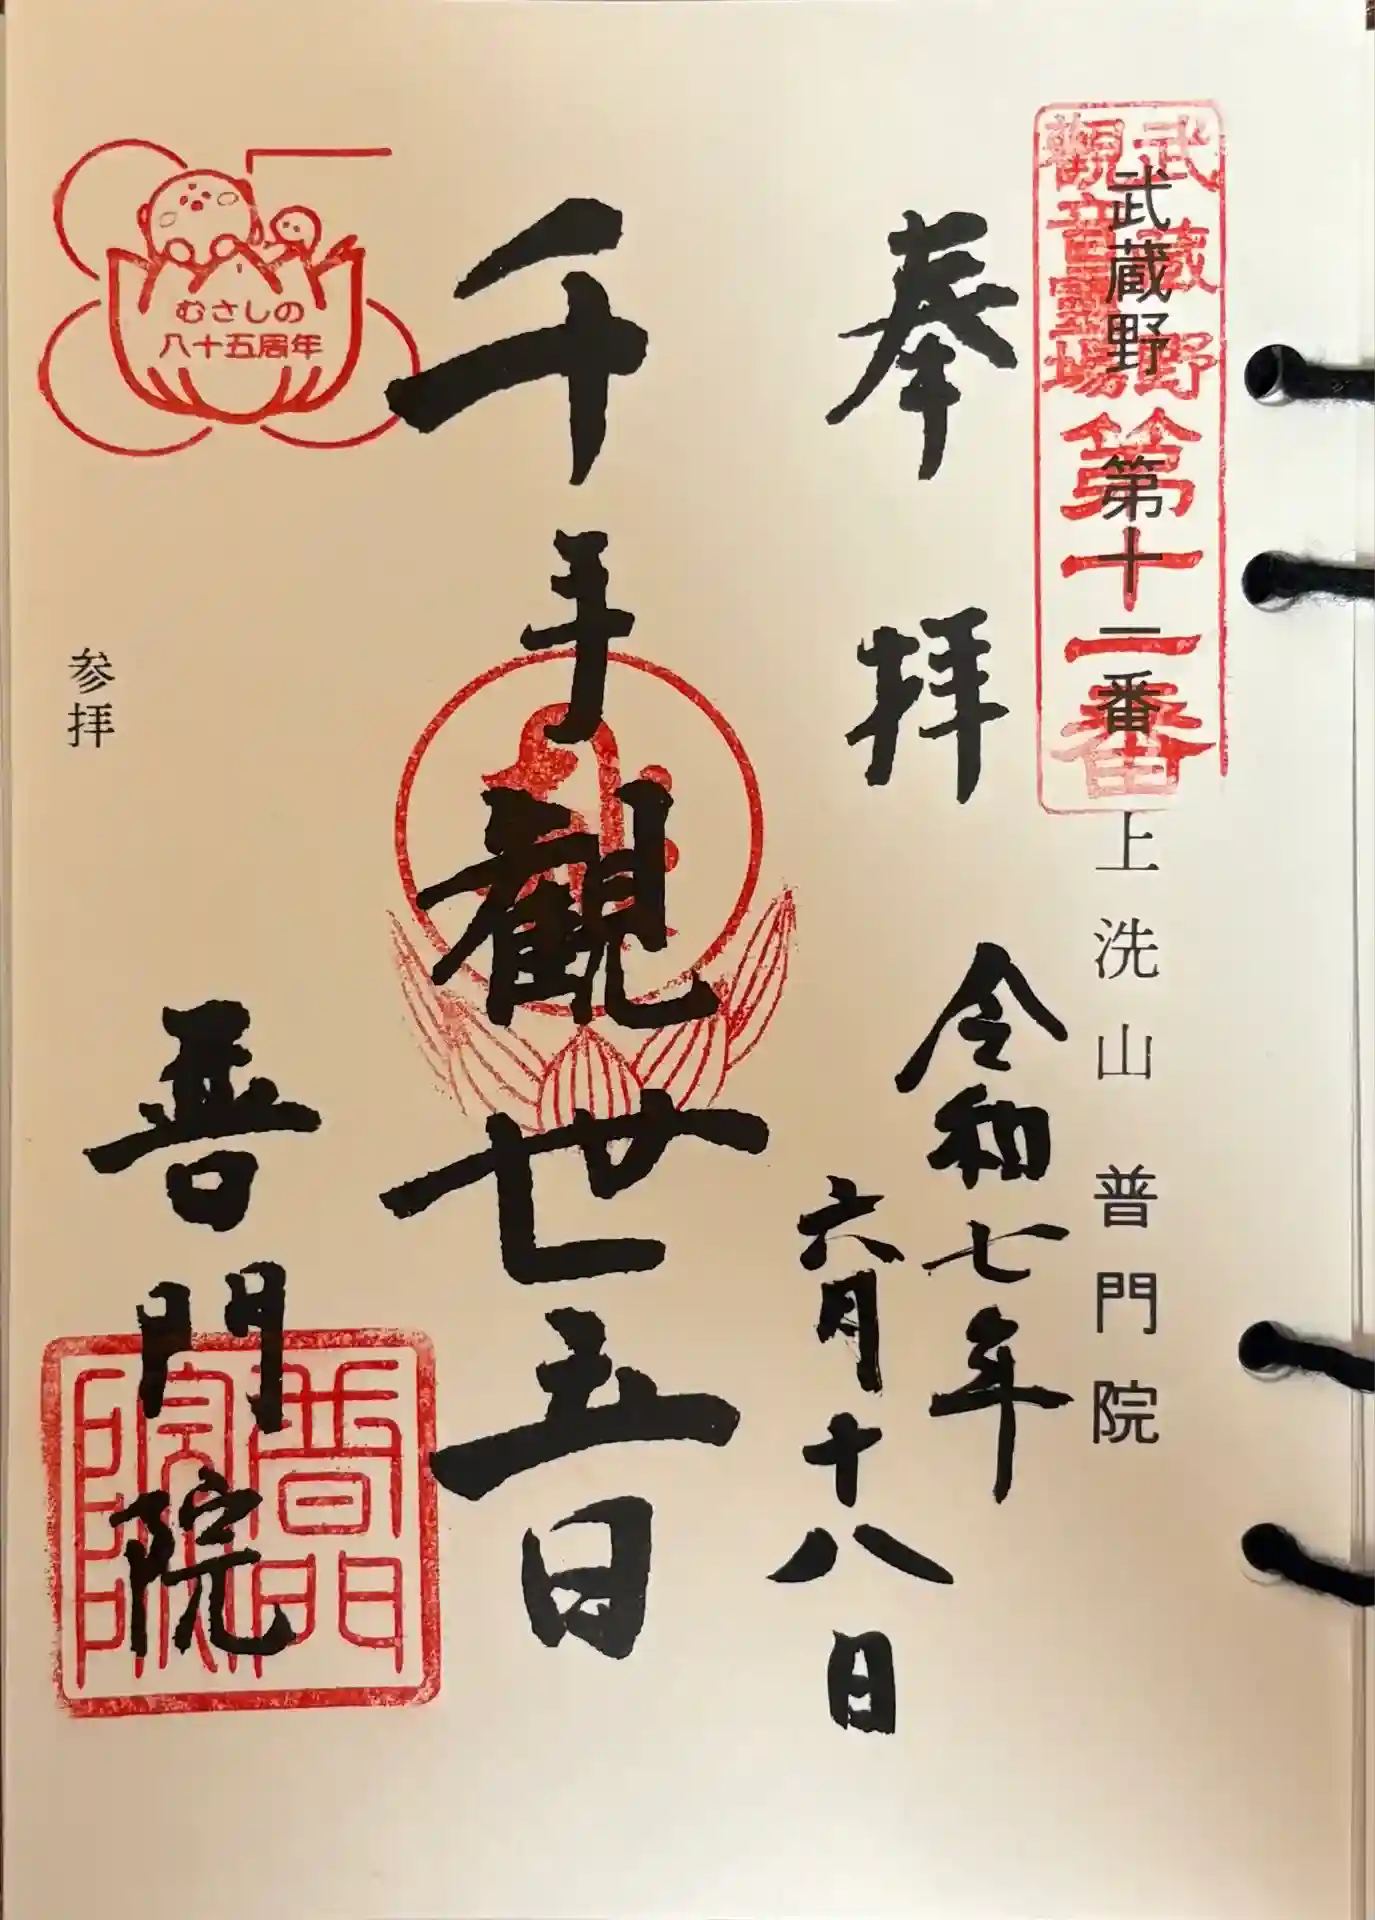 武蔵野 第十一番 上洗山 普門院
武蔵野
觀音靈場
第十一番
奉拝
令和七年
六月十八日
千手観世音
普門院
普門
院
むさしの
八十五周年
参拝